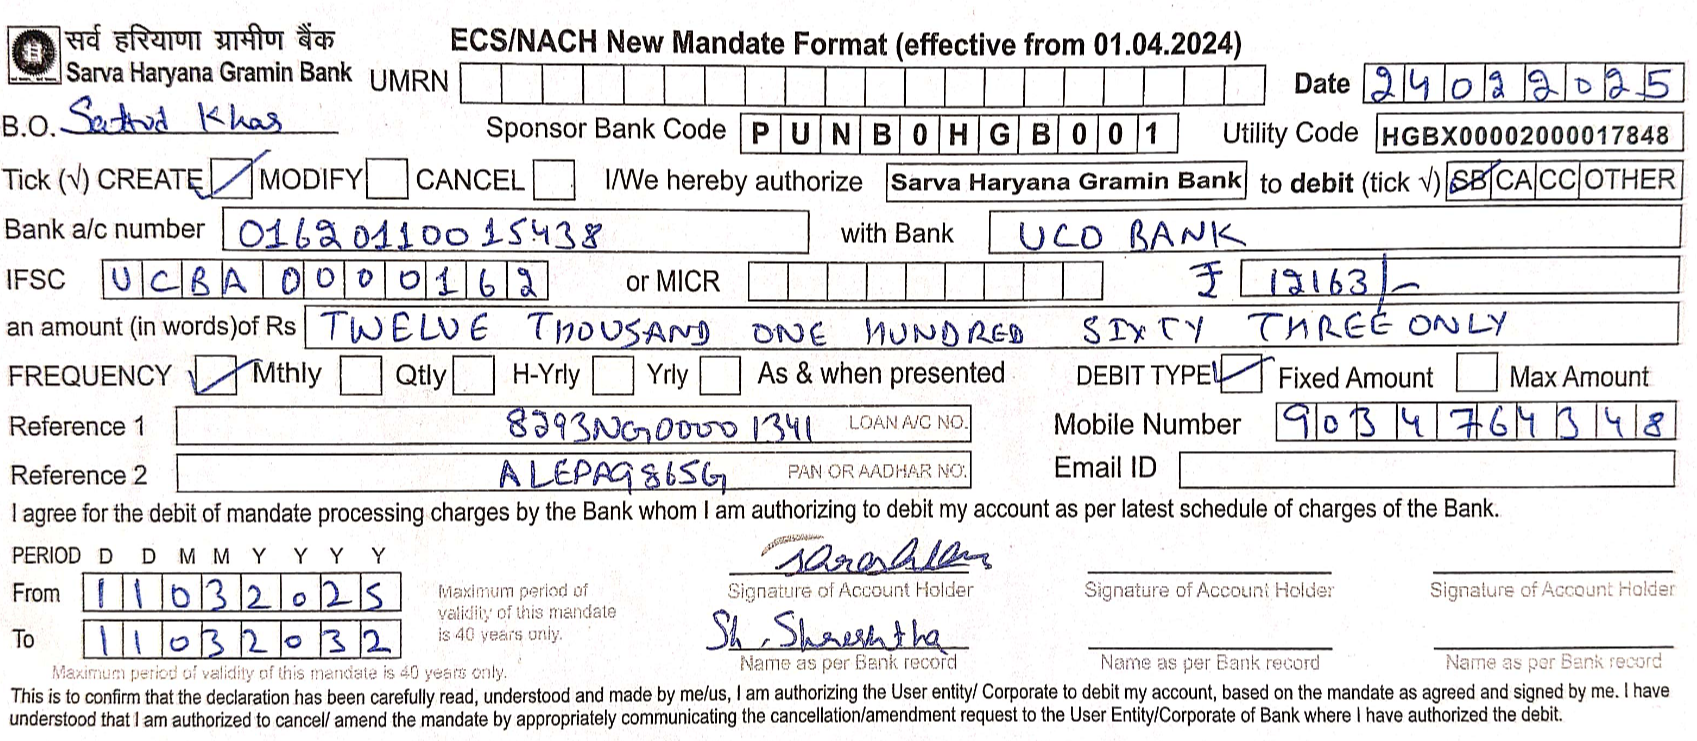 सर्व हरियाणा ग्रामीण बैंक
Sarva Haryana Gramin Bank
ECS/NACH New Mandate Format (effective from 01.04.2024)
UMRN Date 24022025
B.O. Khas Sponsor Bank Code PUNB0HGB001 Utility Code HGBX00002000017848
Tick (√) CREATE MODIFY CANCEL I/We hereby authorize Sarva Haryana Gramin Bank to debit (tick √) SB CA CC OTHER
Bank a/c number 01620110015438 with Bank UCO BANK
IFSC UCBA0000162 or MICR ₹ 12163/-
an amount (in words)of Rs TWELVE THOUSAND ONE HUNDRED SIXTY THREE ONLY
FREQUENCY Mthly Qtly H-Yrly Yrly As & when presented DEBIT TYPE Fixed Amount Max Amount
Reference 1 8293NG00001341 LOAN A/C NO. Mobile Number 9034764348
Reference 2 ALEPA9865G PAN OR AADHAR NO. Email ID
I agree for the debit of mandate processing charges by the Bank whom I am authorizing to debit my account as per latest schedule of charges of the Bank.
PERIOD D D M M Y Y Y Y
From 11032025
To 11032032
Maximum period of validity of this mandate is 40 years only.
Maximum period of
validity of this mandate
is 40 years only.
Signature of Account Holder Signature of Account Holder Signature of Account Holder
Sh. Shreshtha
Name as per Bank record Name as per Bank record Name as per Bank record
This is to confirm that the declaration has been carefully read, understood and made by me/us, I am authorizing the User entity/ Corporate to debit my account, based on the mandate as agreed and signed by me. I have
understood that I am authorized to cancel/ amend the mandate by appropriately communicating the cancellation/amendment request to the User Entity/Corporate of Bank where I have authorized the debit.